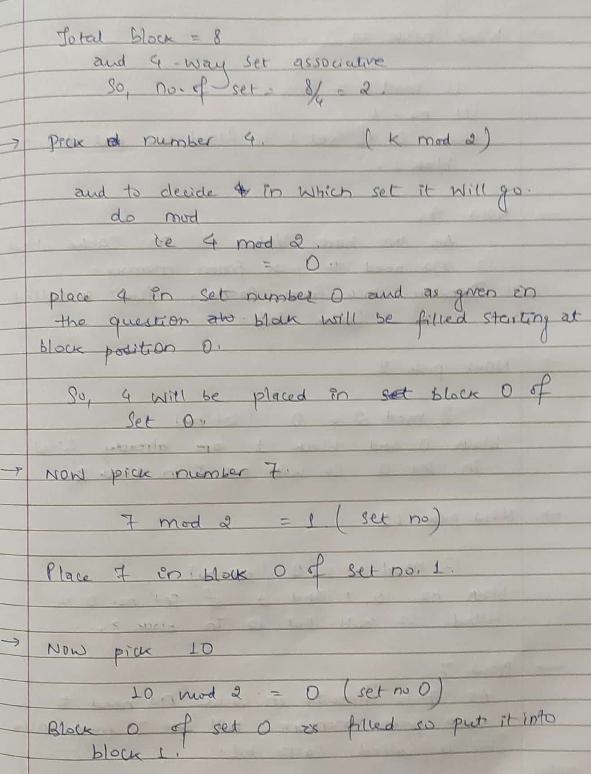 Total block = 8
and 4-way set associative
So, no. of set = 8/4 = 2.
→ Pick number 4. ( k mod 2 )
and to decide in which set it will go.
do mod
ie 4 mod 2.
= 0.
place 4 in set number 0 and as given in
the question block will be filled starting at
block position 0.
So, 4 will be placed in block 0 of
Set 0.
→ Now pick number 7.
7 mod 2 = 1 ( set no )
Place 7 in block 0 of set no. 1.
→ Now pick 10
10 mod 2 = 0 ( set no 0 )
Block 0 of set 0 is filled so put it into
block 1.